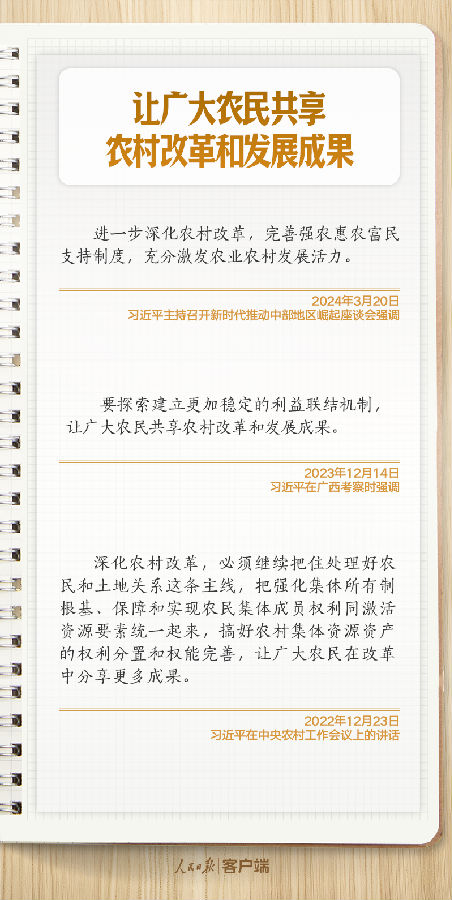 让广大农民共享
农村改革和发展成果
进一步深化农村改革，完善强农惠农富民
支持制度，充分激发农业农村发展活力。
2024年3月20日
习近平主持召开新时代推动中部地区崛起座谈会强调
要探索建立更加稳定的利益联结机制，
让广大农民共享农村改革和发展成果。
2023年12月14日
习近平在广西考察时强调
深化农村改革，必须继续把住处理好农
民和土地关系这条主线，把强化集体所有制
根基、保障和实现农民集体成员权利同激活
资源要素统一起来，搞好农村集体资源资产
的权利分置和权能完善，让广大农民在改革
中分享更多成果。
2022年12月23日
习近平在中央农村工作会议上的讲话
人民日报|客户端